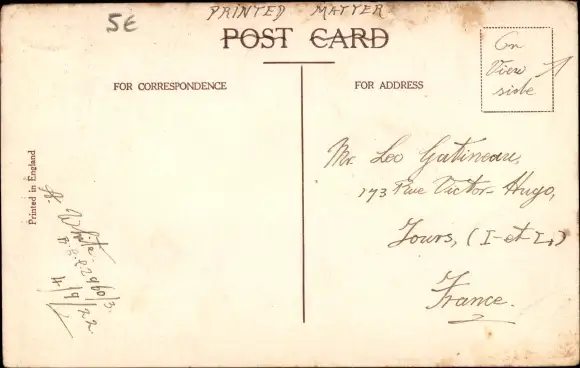 5€
PRINTED MATTER
POST CARD
FOR CORRESPONDENCE
FOR ADDRESS
On
View
side
Mr. Leo Gatineau,
173 Rue Victor-Hugo,
Tours, (I-et-L.)
France.
Printed in England
J. White
2960/3.
4/9/22